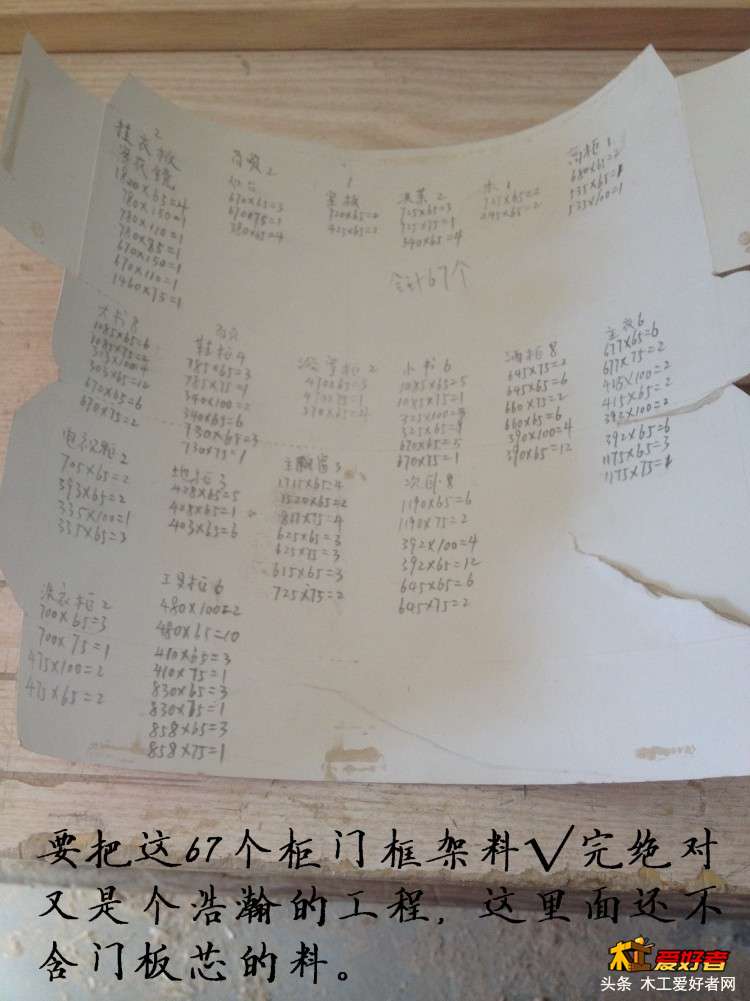 2
挂衣板
穿衣镜
1800×65=4
780×150=1
780×110=1
780×85=1
670×150=1
670×110=1
1460×75=1
2
670×65=3
670×75=1
380×65=4
1
720×65=2
425×65=2
2
725×65=3
725×75=1
340×65=4
1
725×65=2
245×65=2
高柜1
680×65=2
535×65=1
535×100=1
合计67个
大书8
1085×65=6
1085×75=2
303×100=4
303×65=12
670×65=6
670×75=2
鞋柜4
785×65=3
785×75=1
340×100=2
340×65=6
730×65=3
730×75=1
2
410×65=3
410×75=1
390×65=4
小书6
1085×65=5
1085×75=1
325×100=3
325×65=9
670×65=5
670×75=1
酒柜8
645×75=2
645×65=6
660×75=2
660×65=6
390×100=4
390×65=12
主衣6
677×65=6
677×75=2
415×100=2
415×65=2
392×100=2
392×65=6
1175×65=3
1175×75=1
电视柜2
705×65=2
593×65=2
335×100=1
335×65=3
地柜3
428×65=5
428×65=1
403×65=6
主飘窗3
1715×65=4
1520×65=2
808×75=4
625×65=3
625×75=3
615×65=3
725×75=2
次卧8
1190×65=6
1190×75=2
392×100=4
392×65=12
645×65=6
645×75=2
洗衣柜2
700×65=3
700×75=1
475×100=2
475×65=2
工具柜6
480×100=2
480×65=10
410×65=3
410×75=1
830×65=3
830×75=1
858×65=3
858×75=1
要把这67个柜门框架料√完绝对
又是个浩瀚的工程，这里面还不
含门板芯的料。
木工爱好者
头条 木工爱好者网